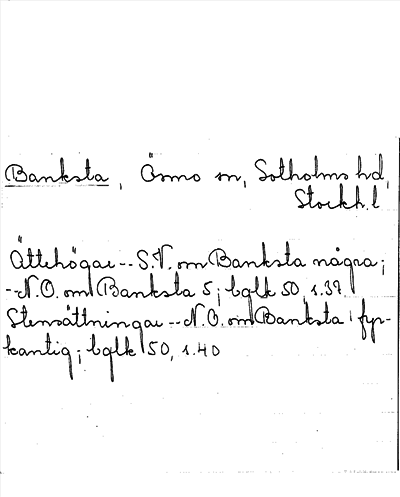 Banksta, Ösmo sn, Sotholms hd,
Stockh. l
Ättehögar -- S.V. om Banksta några;
-- N.O. om Banksta 5; bglk 50, s.39
Stensättningar -- N.O. om Banksta 1 fyr-
kantig; bglk 50, s.40